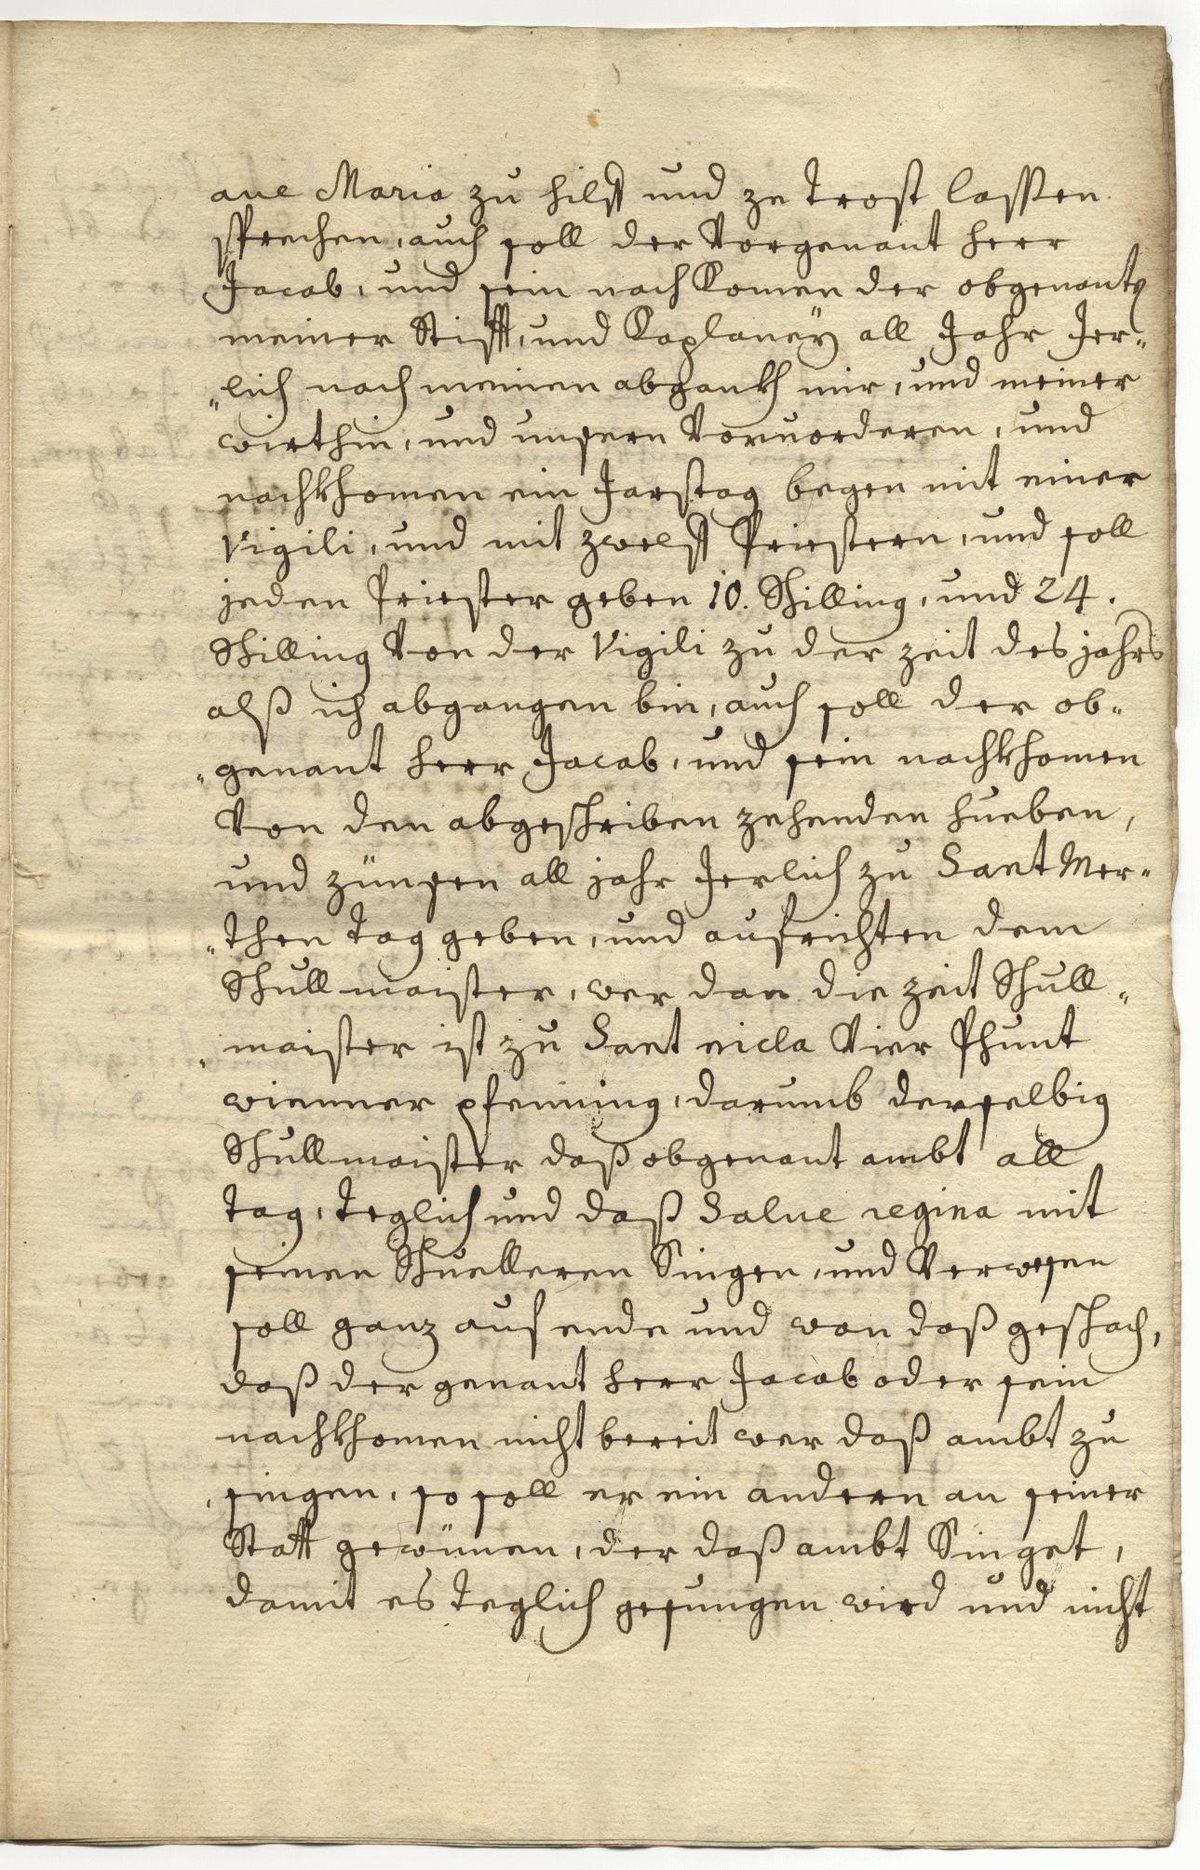 aue Maria zu hilff und ze trost lassen
sprechen, auch soll der Vorgenant herr
Jacob, und sein nach Komen der obgenanten
meiner Stifft, und Kaplaneÿ all Jahr Jer„
„lich nach meinen abgankh mir, und meiner
wirthin, und unsern Voruorderen, und
nachkhomen ein Jarstag begen mit einer
Vigili, und mit zwelff Priestern, und soll
jeden Priester geben 10. Schilling, und 24.
Schilling Von der Vigili zu der zeit des jahrs
alß ich abgangen bin, auch soll der ob„
„genant herr Jacob, und sein nachkhomen
Von den abgeschriben zehenden hueben,
und zünsen all jahr Jerlich zu Sant Mer„
„then tag geben, und aufrichten dem
Schullmaister, wer dan die zeit Schull„
„maister ist zu Sant nicla Vier Phunt
wienner pfenning, darumb derselbig
Schullmaister daß obgenant ambt all
tag, teglich und daß Salue regina mit
seinen Schuelleren Singen, und Verwesen
soll ganz auf ende und wan daß geschach,
daß der genant herr Jacob oder sein
nachkhomen nicht bereit wer daß ambt zu
singen, so soll er ein andern an seiner
Statt gewünen, der daß ambt Singet,
damit es teglich gesungen wird und nicht